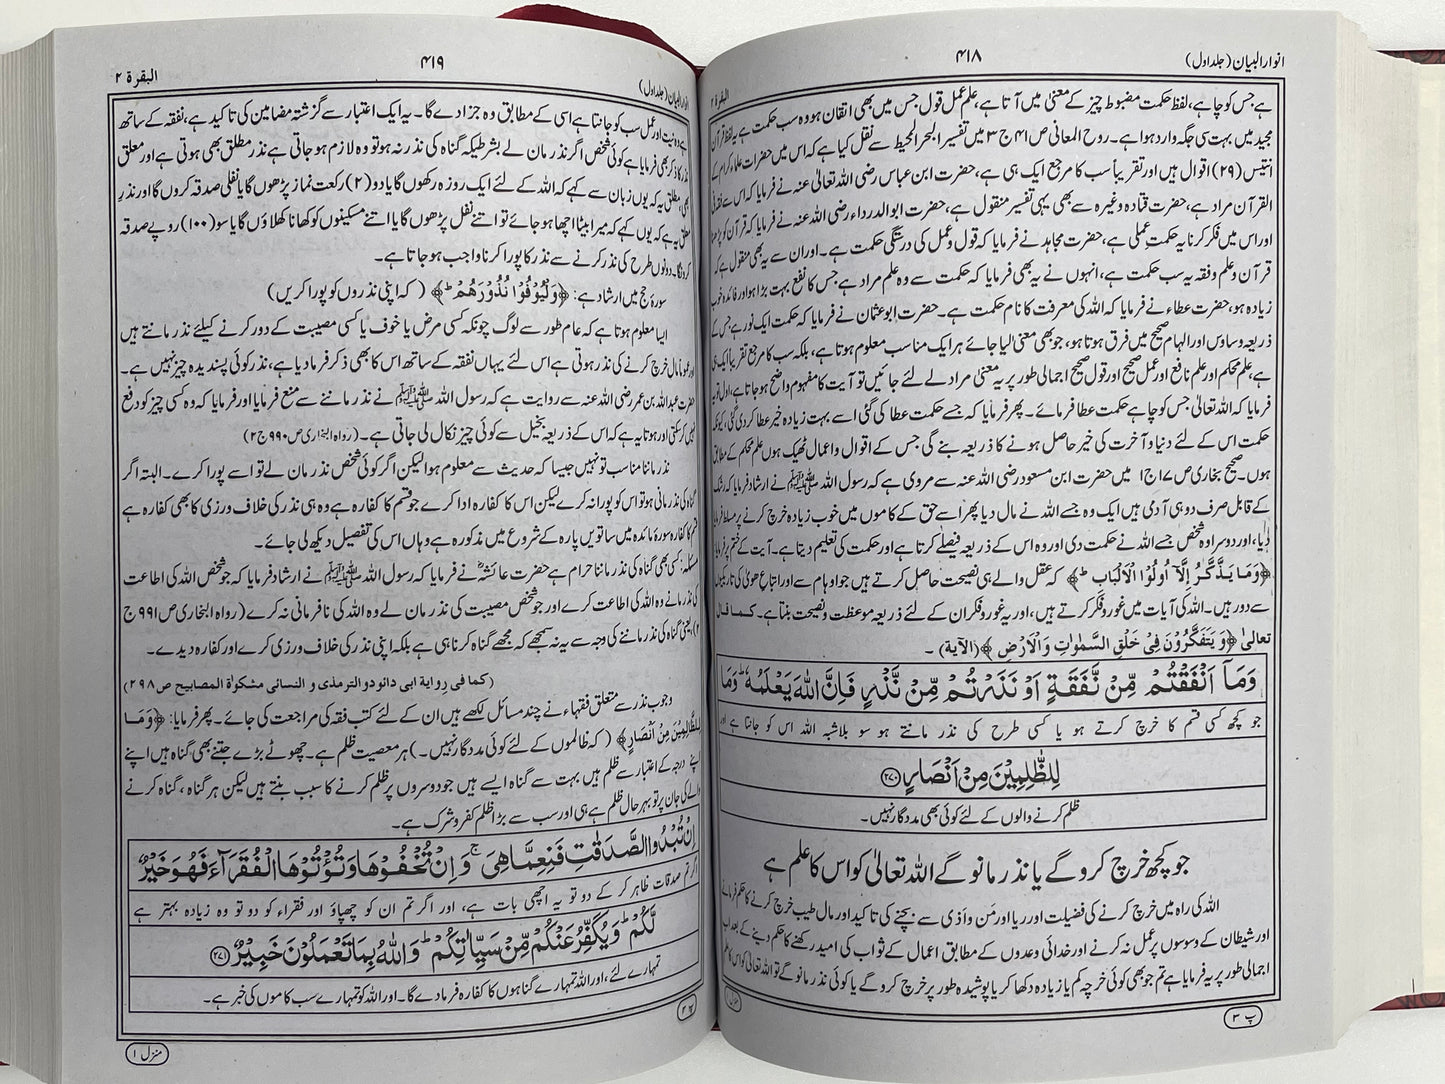 انوار البیان (جلد اول)
۴۱۸
البقرۃ ۲
ہے جس کو چاہے، لفظ حکمت مضبوط چیز کے معنیٰ میں آتا ہے، علم عمل قول جس میں بھی اتقان ہو وہ سب حکمت ہے یہ لفظ قرآن
مجید میں بہت سی جگہ وارد ہوا ہے۔ روح المعانی ص ۴۱ ج ۳ میں تفسیر البحر المحیط سے نقل کیا ہے کہ اس میں حضرات علماء کرام کے
انتیس (۲۹) اقوال ہیں اور تقریباً سب کا مرجع ایک ہی ہے، حضرت ابن عباس رضی اللہ تعالیٰ عنہ نے فرمایا کہ اس سے فقہ فی
القرآن مراد ہے، حضرت قتادہ وغیرہ سے بھی یہی تفسیر منقول ہے، حضرت ابوالدرداء رضی اللہ عنہ نے فرمایا کہ قرآن کو پڑھنا
اور اس میں فکر کرنا یہ حکمت عملی ہے، حضرت مجاہد نے فرمایا کہ قول و عمل کی درستگی حکمت ہے۔ اور ان سے یہ بھی منقول ہے کہ
قرآن و علم و فقہ یہ سب حکمت ہے، انہوں نے یہ بھی فرمایا کہ حکمت سے وہ علم مراد ہے جس کا نفع بہت بڑا ہو اور فائدہ خوب
زیادہ ہو، حضرت عطاء نے فرمایا کہ اللہ کی معرفت کا نام حکمت ہے۔ حضرت ابوعثمان نے فرمایا کہ حکمت ایک نور ہے جس کے
ذریعہ وساوس اور الہام صحیح میں فرق ہوتا ہو، جو بھی معنیٰ لیا جائے ہر ایک مناسب معلوم ہوتا ہے، بلکہ سب کا مرجع تقریباً ایک ہی
ہے، علم محکم اور علم نافع اور عمل صحیح اور قول صحیح اجمالی طور پر یہ معنیٰ مراد لے لئے جائیں تو آیت کا مفہوم واضح ہو جاتا ہے، اول تو یہ
فرمایا کہ اللہ تعالیٰ جس کو چاہے حکمت عطا فرمائے۔ پھر فرمایا کہ جسے حکمت عطا کی گئی اسے بہت زیادہ خیر عطا کر دی گئی، کیونکہ
حکمت اس کے لئے دنیا و آخرت کی خیر حاصل ہونے کا ذریعہ بنے گی جس کے اقوال و اعمال ٹھیک ہوں علم محکم کے مطابق
ہوں۔ صحیح بخاری ص ۱۷ ج ۱ میں حضرت ابن مسعود رضی اللہ عنہ سے مروی ہے کہ رسول اللہ ﷺ نے ارشاد فرمایا کہ رشک
کے قابل صرف دو ہی آدمی ہیں ایک وہ جسے اللہ نے مال دیا پھر اسے حق کے کاموں میں خوب زیادہ خرچ کرنے پر مسلط فرما
دیا، اور دوسرا وہ شخص جسے اللہ نے حکمت دی اور وہ اس کے ذریعہ فیصلے کرتا ہے اور حکمت کی تعلیم دیتا ہے۔ آیت کے ختم پر فرمایا
﴿وَمَا يَذَّكَّرُ اِلَّآ اُولُوا الْاَلْبَابِ﴾ کہ عقل والے ہی نصیحت حاصل کرتے ہیں جو اوہام سے اور اتباع ھویٰ کی تاریکیوں
سے دور ہیں۔ اللہ کی آیات میں غور و فکر کرتے ہیں، اور یہ غور و فکر ان کے لئے ذریعہ موعظت و نصیحت بنتا ہے۔ کما قال
تعالیٰ ﴿وَ يَتَفَكَّرُوْنَ فِيْ خَلْقِ السَّمٰوٰتِ وَ الْاَرْضِ﴾ (الآیۃ)۔
وَمَآ اَنْفَقْتُمْ مِّنْ نَّفَقَةٍ اَوْ نَذَرْتُمْ مِّنْ نَّذْرٍ فَاِنَّ اللّٰهَ يَعْلَمُهٗ ؕ وَمَا
جو کچھ کسی قسم کا خرچ کرتے ہو یا کسی طرح کی نذر مانتے ہو سو بلاشبہ اللہ اس کو جانتا ہے اور
لِلظّٰلِمِيْنَ مِنْ اَنْصَارٍ ﴿۲۷۰﴾
ظلم کرنے والوں کے لئے کوئی بھی مددگار نہیں۔
جو کچھ خرچ کرو گے یا نذر مانو گے اللہ تعالیٰ کو اس کا علم ہے
اللہ کی راہ میں خرچ کرنے کی فضیلت اور ریا اور مَن و اَذی سے بچنے کی تاکید اور مال طیب خرچ کرنے کا حکم فرمانے
اور شیطان کے وسوسوں پر عمل نہ کرنے اور خدائی وعدوں کے مطابق اعمال کے ثواب کی امید رکھنے کا حکم دینے کے بعد اب
اجمالی طور پر یہ فرمایا ہے تم جو بھی کوئی خرچہ کم یا زیادہ دکھا کر یا پوشیدہ طور پر خرچ کرو گے یا کوئی نذر مانو گے تو اللہ تعالیٰ کو اس کا علم
پ ۳
منزل ۱
انوار البیان (جلد اول)
۴۱۹
البقرۃ ۲
ہے وہ نیت اور عمل سب کو جانتا ہے اسی کے مطابق وہ جزا دے گا۔ یہ ایک اعتبار سے گزشتہ مضامین کی تاکید ہے، نفقہ کے ساتھ
نذر کا ذکر بھی فرمایا ہے کوئی شخص اگر نذر مان لے بشرطیکہ گناہ کی نذر نہ ہو تو وہ لازم ہو جاتی ہے نذر مطلق بھی ہوتی ہے اور معلق
بھی، مطلق یہ کہ یوں زبان سے کہے کہ اللہ کے لئے ایک روزہ رکھوں گا یا دو (۲) رکعت نماز پڑھوں گا یا نفلی صدقہ کروں گا اور نذر
معلق یہ ہے کہ یوں کہے کہ میرا بیٹا اچھا ہو جائے تو اتنے نفل پڑھوں گا یا اتنے مسکینوں کو کھانا کھلاؤں گا یا سو (۱۰۰) روپے صدقہ
کروں گا۔ دونوں طرح کی نذر کرنے سے نذر کا پورا کرنا واجب ہو جاتا ہے۔
سورۂ حج میں ارشاد ہے: ﴿وَلْيُوْفُوْا نُذُوْرَهُمْ﴾ (کہ اپنی نذروں کو پورا کریں)
ایسا معلوم ہوتا ہے کہ عام طور سے لوگ چونکہ کسی مرض یا خوف یا کسی مصیبت کے دور کرنے کیلئے نذر مانتے ہیں
اور عموماً مال خرچ کرنے کی نذر ہوتی ہے اس لئے یہاں نفقہ کے ساتھ اس کا بھی ذکر فرما دیا ہے، نذر کوئی پسندیدہ چیز نہیں ہے۔
حضرت عبداللہ بن عمر رضی اللہ عنہ سے روایت ہے کہ رسول اللہ ﷺ نے نذر ماننے سے منع فرمایا اور فرمایا کہ وہ کسی چیز کو دفع
نہیں کر سکتی اور ہوتا یہ ہے کہ اس کے ذریعہ بخیل سے کوئی چیز نکال لی جاتی ہے۔ (رواہ البخاری ص ۹۹۰ ج ۲)
نذر ماننا مناسب تو نہیں جیسا کہ حدیث سے معلوم ہوا لیکن اگر کوئی شخص نذر مان لے تو اسے پورا کرے۔ البتہ اگر
گناہ کی نذر مانی ہو تو اس کو پورا نہ کرے لیکن اس کا کفارہ ادا کرے جو قسم کا کفارہ ہے وہی نذر کی خلاف ورزی کا بھی کفارہ ہے
قسم کا کفارہ سورۂ مائدہ میں ساتویں پارہ کے شروع میں مذکورہ ہے وہاں اس کی تفصیل دیکھ لی جائے۔
مسئلہ: کسی بھی گناہ کی نذر ماننا حرام ہے حضرت عائشہؓ نے فرمایا کہ رسول اللہ ﷺ نے ارشاد فرمایا کہ جو شخص اللہ کی اطاعت
کی نذر مانے وہ اللہ کی اطاعت کرے اور جو شخص معصیت کی نذر مان لے وہ اللہ کی نافرمانی نہ کرے (رواہ البخاری ص ۹۹۱ ج
۲) یعنی گناہ کی نذر ماننے کی وجہ سے یہ نہ سمجھے کہ مجھے گناہ کرنا ہی ہے بلکہ اپنی نذر کی خلاف ورزی کرے اور کفارہ دیدے۔
(کما فی روایۃ ابی دائود والترمذی و النسائی مشکوٰۃ المصابیح ص ۲۹۸)
وجوب نذر سے متعلق فقہاء نے چند مسائل لکھے ہیں ان کے لئے کتب فقہ کی مراجعت کی جائے۔ پھر فرمایا: ﴿وَمَا
لِلظّٰلِمِيْنَ مِنْ اَنْصَارٍ﴾ (کہ ظالموں کے لئے کوئی مددگار نہیں۔) ہر معصیت ظلم ہے۔ چھوٹے بڑے جتنے بھی گناہ ہیں اپنے
اپنے درجہ کے اعتبار سے ظلم ہیں بہت سے گناہ ایسے ہیں جو دوسروں پر ظلم کرنے کا سبب بنتے ہیں لیکن ہر گناہ، گناہ کرنے
والے کی جان پر تو بہر حال ظلم ہے ہی اور سب سے بڑا ظلم کفر و شرک ہے۔
اِنْ تُبْدُوا الصَّدَقٰتِ فَنِعِمَّا هِيَ ۚ وَ اِنْ تُخْفُوْهَا وَ تُؤْتُوْهَا الْفُقَرَآءَ فَهُوَ خَيْرٌ
اگر تم صدقات ظاہر کر کے دو تو یہ اچھی بات ہے، اور اگر تم ان کو چھپاؤ اور فقراء کو دو تو وہ زیادہ بہتر ہے
لَّكُمْ ؕ وَ يُكَفِّرُ عَنْكُمْ مِّنْ سَيِّاٰتِكُمْ ؕ وَاللّٰهُ بِمَا تَعْمَلُوْنَ خَبِيْرٌ ﴿۲۷۱﴾
تمہارے لئے، اور اللہ تمہارے گناہوں کا کفارہ فرما دے گا۔ اور اللہ کو تمہارے سب کاموں کی خبر ہے۔
پ ۳
منزل ۱